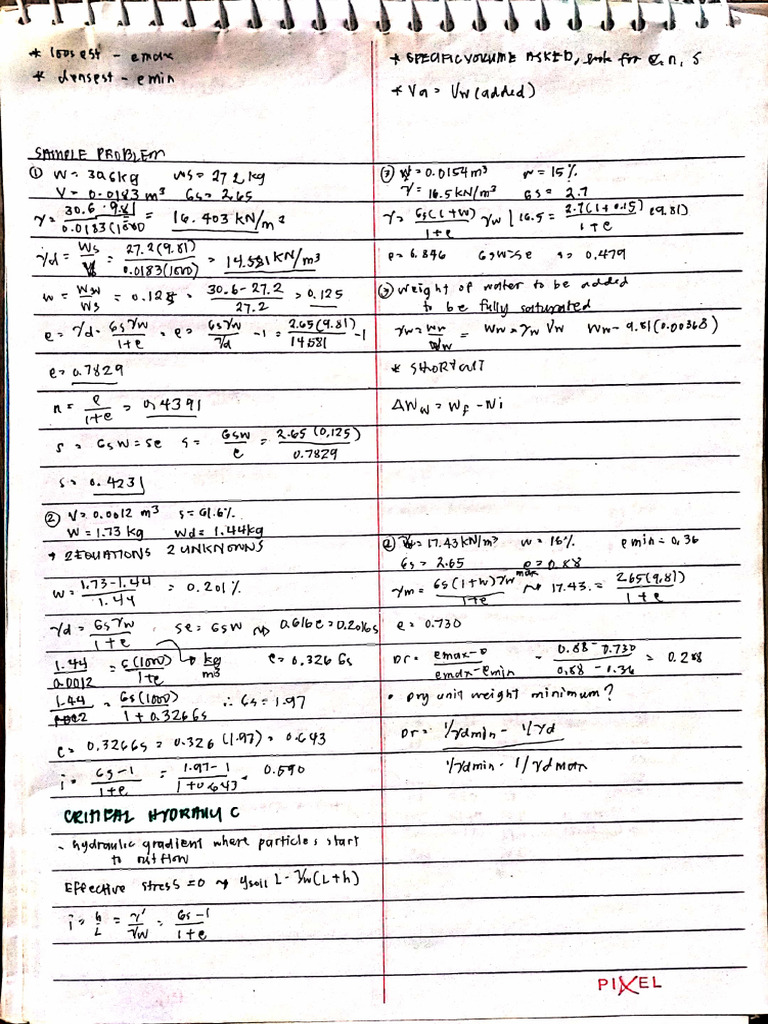 * loosest - emax
* densest - emin
SAMPLE PROBLEM
① W = 30.6 kg Ws = 27.2 kg
V = 0.0183 m³ Gs = 2.65
γ = 30.6 · 9.81 / 0.0183(1000) = 16.403 kN/m³
γd = Ws / V = 27.2(9.81) / 0.0183(1000) = 14.581 kN/m³
w = Ww / Ws = 0.125 = 30.6 - 27.2 / 27.2 = 0.125
e = γd = Gsγw / 1+e = e = Gsγw / γd - 1 = 2.65(9.81) / 14.581 - 1
e = 0.7829
n = e / 1+e = 0.4391
s = Gsw = se s = Gsw / e = 2.65(0.125) / 0.7829
s = 0.4231
② V = 0.0012 m³ s = 61.6%
W = 1.73 kg Wd = 1.44kg
→ 2 EQUATIONS 2 UNKNOWNS
w = 1.73-1.44 / 1.44 = 0.201%
γd = Gsγw / 1+e . se = Gsw ⇝ 0.616e = 0.201Gs
1.44 / 0.0012 = Gs(1000) / 1+e → kg / m³ e = 0.326 Gs
1.44 / 0.0012 = Gs(1000) / 1 + 0.326Gs ∴ Gs = 1.97
e = 0.326Gs = 0.326 (1.97) = 0.643
i = Gs-1 / 1+e = 1.97-1 / 1+0.643 = 0.590
CRITICAL HYDRAULIC
- hydraulic gradient where particles start
to outflow
Effective stress = 0 ⇝ γsoil L - γw(L+h)
i = h / L = γ' / γw = Gs-1 / 1+e
* SPECIFIC VOLUME ASKED, look for e, n, s
* Va = Vw (added)
③ V = 0.0154 m³ w = 15%
γ = 16.5 kN/m³ Gs = 2.7
γ = Gs(1+w) / 1+e γw | 16.5 = 2.7(1+0.15) / 1+e (9.81)
e = 0.846 Gsw = se s = 0.479
③ weight of water to be added
to be fully saturated
γw = Ww / Vw = Ww = γw Vw Ww - 9.81(0.00368)
* SHORTCUT
ΔWw = Wf - Wi
④ γ = 17.43 kN/m³ w = 16% emin = 0.36
Gs = 2.65 emax = 0.88
γm = Gs(1+w)γw / 1+e ⇝ 17.43 = 2.65(9.81) / 1+e
e = 0.730
Dr = emax-e / emax-emin = 0.88-0.730 / 0.88-0.36 = 0.288
• Dry unit weight minimum?
Dr = 1/γdmin - 1/γd
1/γdmin - 1/γdmax
PIXEL